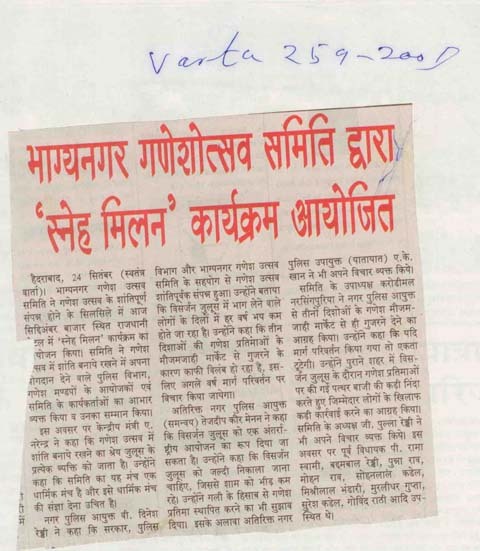 Varta 259-2001
भाग्यनगर गणेशोत्सव समिति द्वारा
‘स्नेह मिलन’ कार्यक्रम आयोजित
हैदराबाद, 24 सितंबर (स्वतंत्र
वार्ता)। भाग्यनगर गणेश उत्सव
समिति ने गणेश उत्सव के शांतिपूर्ण
संपन्न होने के सिलसिले में आज
सिद्दिअंबर बाजार स्थित राजधानी
में ‘स्नेह मिलन’ कार्यक्रम का
योजन किया। समिति ने गणेश
सव में शांति बनाये रखने में अपना
गदान देने वाले पुलिस विभाग,
गणेश मण्डपों के आयोजकों एवं
समिति के कार्यकर्ताओं का आभार
व्यक्त किया व उनका सम्मान किया।
इस अवसर पर केन्द्रीय मंत्री ए.
नरेन्द्र ने कहा कि गणेश उत्सव में
शांति बनाये रखने का श्रेय जुलूस के
प्रत्येक व्यक्ति को जाता है। उन्होंने
कहा कि समिति का यह मंच एक
धार्मिक मंच है और इसे धार्मिक मंच
की संज्ञा देना उचित है।
नगर पुलिस आयुक्त वी. दिनेश
रेड्डी ने कहा कि सरकार, पुलिस
विभाग और भाग्यनगर गणेश उत्सव
समिति के सहयोग से गणेश उत्सव
शांतिपूर्वक संपन्न हुआ। उन्होंने बताया
कि विसर्जन जुलूस में भाग लेने वाले
लोगों के दिलों में हर वर्ष भय कम
होते जा रहा है। उन्होंने कहा कि तीन
दिशाओं की गणेश प्रतिमाओं के
मौजमजाही मार्केट से गुजरने के
कारण काफी विलंब हो रहा है, इस-
लिए अगले वर्ष मार्ग परिवर्तन पर
विचार किया जायेगा।
अतिरिक्त नगर पुलिस आयुक्त
(समन्वय) तेजदीप कौर मेनन ने कहा
कि विसर्जन जुलूस को एक अंतर्रा-
ष्ट्रीय आयोजन का रूप दिया जा
सकता है। उन्होंने कहा कि विसर्जन
जुलूस को जल्दी निकाला जाना
चाहिए, जिससे शाम को भीड़ कम
रहे। उन्होंने गली के हिसाब से गणेश
प्रतिमा स्थापित करने का भी सुझाव
दिया। इसके अलावा अतिरिक्त नगर
पुलिस उपायुक्त (यातायात) ए.के.
खान ने भी अपने विचार व्यक्त किये।
समिति के उपाध्यक्ष करोडीमल
नरसिंगपुरिया ने नगर पुलिस आयुक्त
से तीनों दिशाओं के गणेश मौजम-
जाही मार्केट से ही गुजरने देने का
आग्रह किया। उन्होंने कहा कि यदि
मार्ग परिवर्तन किया गया तो एकता
टूटेगी। उन्होंने पुराने शहर में विस-
र्जन जुलूस के दौरान गणेश प्रतिमाओं
पर की गई पत्थर बाजी की कड़ी निंदा
करते हुए जिम्मेदार लोगों के खिलाफ
कड़ी कार्रवाई करने का आग्रह किया।
समिति के अध्यक्ष जी. पुल्ला रेड्डी ने
भी अपने विचार व्यक्त किये। इस
अवसर पर पूर्व विधायक पी. रामा
स्वामी, बद्दमबाल रेड्डी, पुन्ना राव,
मोहन राव, सोहनलाल कडेल,
मिश्रीलाल भंडारी, मुरलीधर गुप्ता,
सुरेश कडेल, गोविंद राठी आदि उप-
स्थित थे।